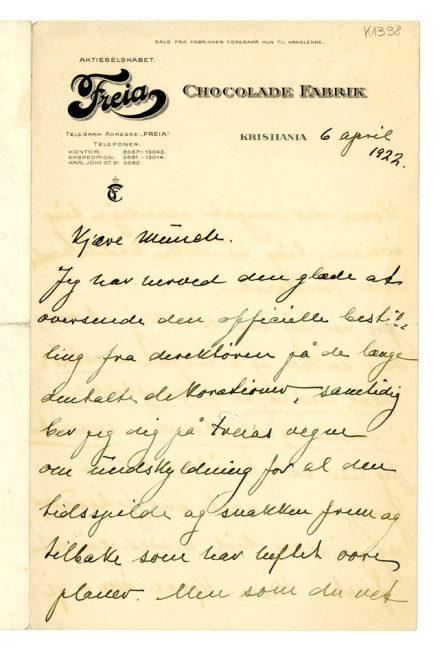 K1338
SALG FRA FABRIKKEN FOREGAAR KUN TIL HANDLENDE.
AKTIESELSKABET
Freia
CHOCOLADE FABRIK
TELEGRAM ADRESSE: „FREIA"
TELEFONER:
KONTOR: 83671-13043.
EKSPEDITION: 2681 - 13014.
KARL JOHS GT. 31. 9582.
KRISTIANIA 6 april
1922.
Kjære Munch.
Jeg har herved den glæde at
oversende den officielle bestil-
ling fra direktören på de længe
omtalte dekorationer, samtidig
ber jeg dig på Freias vegne
om undskyldning for al den
tidsspilde og snakken frem og
tilbake som har heftet vore
planer. Men som du vet